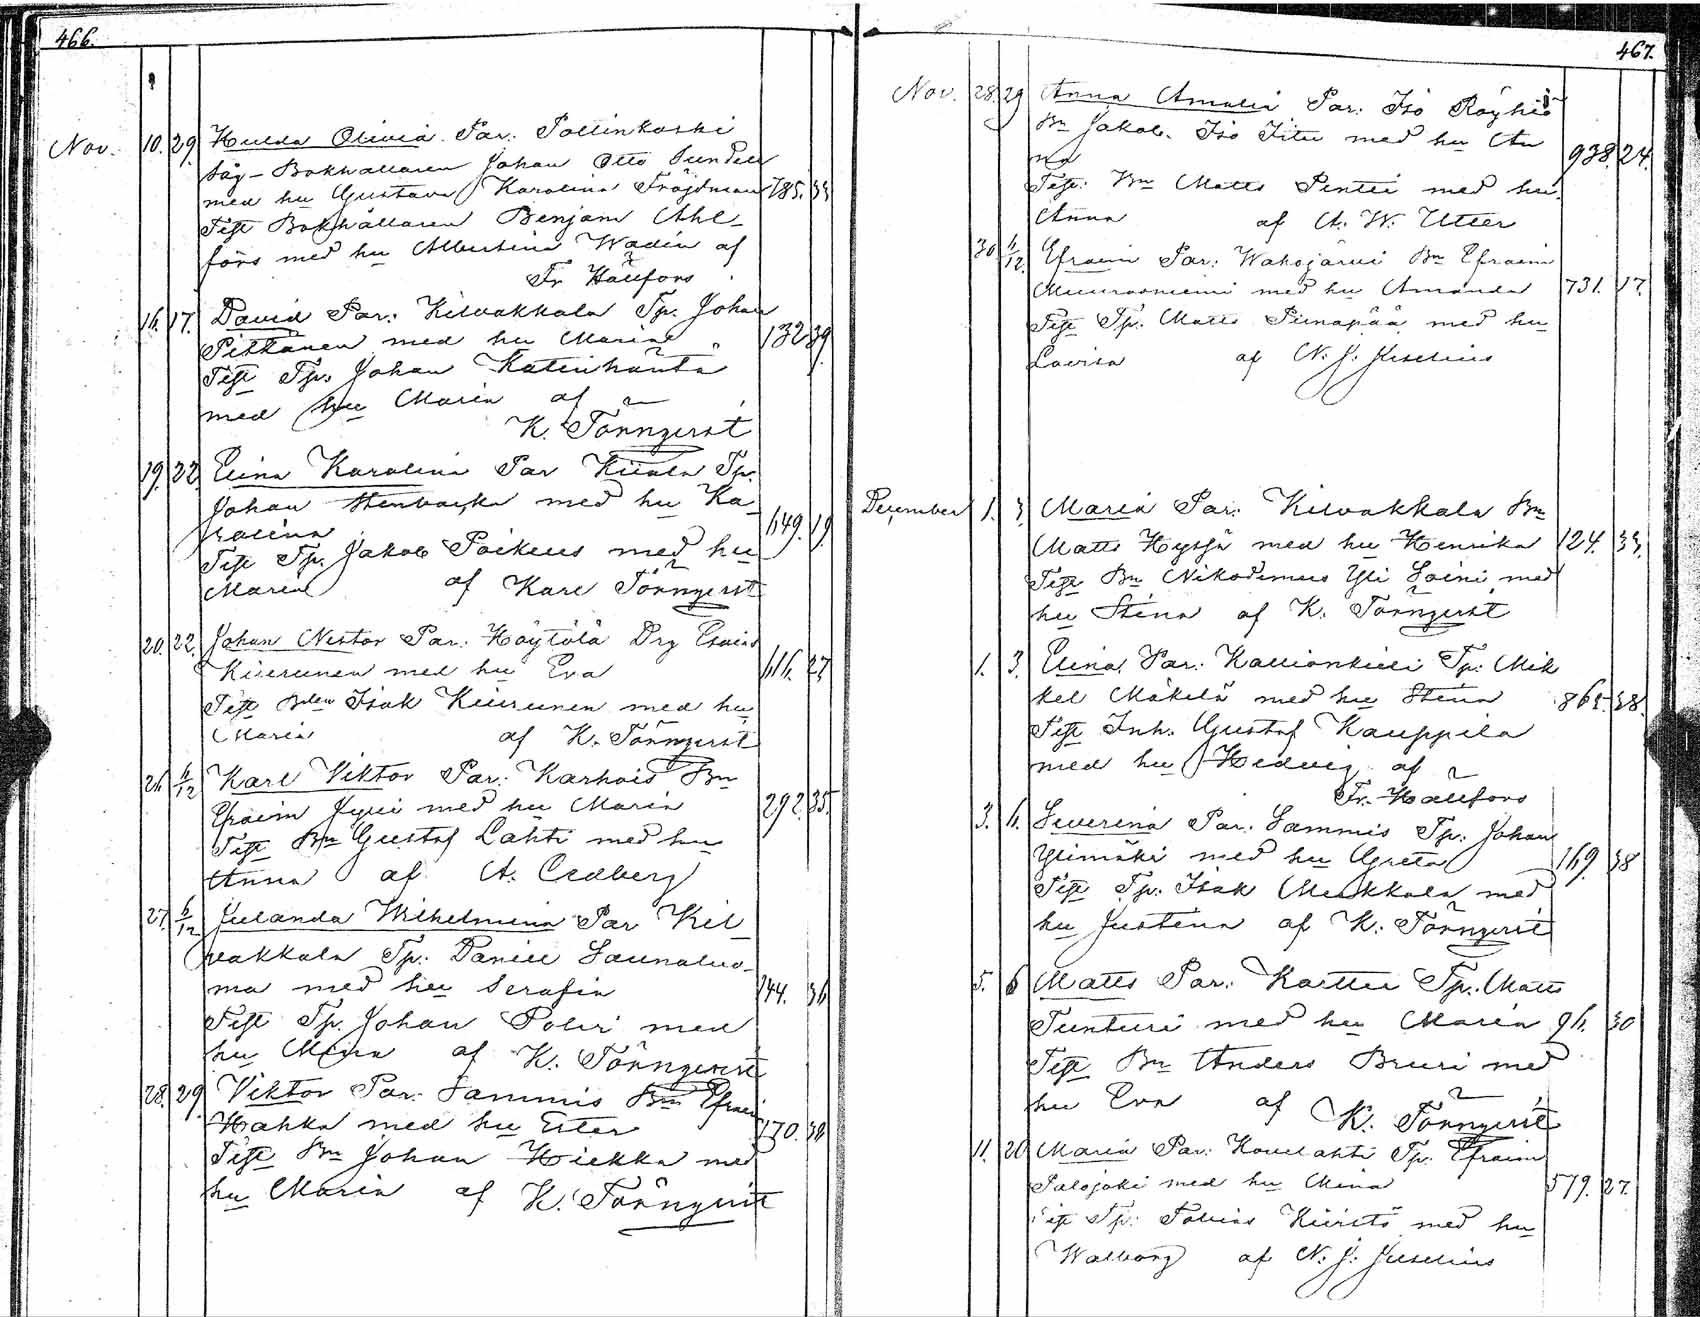 466.
Nov. 10. 29. Hulda Olivia. Par: Pollinkoski
Såg-Bokhållaren Johan Otto Sundell
med hu Gustava Karolina Fröjdman 785. 33
Test Bokhållaren Benjam Ahl-
fors med hu Albertina Wadén af
Fr Hällfors
16. 17. David Par: Kilvakkala Tp. Johan
Pitkänen med hu Maria 132 39
Test Tp. Johan Katinhänta
med hu Maria af
K. Törnqvist
19. 22. Elina Karolina Par Kiiala Tp.
Johan Stenbacka med hu Ka-
rolina 649. 19.
Test Tp. Jakob Poikeus med hu
Maria af Karl Törnqvist
20. 22. Johan Nestor Par: Höytölä Drg Esaias
Kiierunen med hu Eva 616. 27
Test Bden Isak Kiierunen med hu
Maria af K. Törnqvist
26. 6/12 Karl Viktor Par: Karhois Bn
Efraim Jyui med hu Maria 292. 35.
Test Bn Gustaf Lahti med hu
Anna af A. Cedberg
27. 6/12 Julanda Wilhelmina Par Kil-
vakkala Tp. Daniel Saunaluo-
ma med hu Serafia 144. 36
Test Tp. Johan Poliri med
hu Mina af K. Törnqvist
28. 29. Viktor Par: Sammis Bn Efraim
Hahka med hu Ester 170. 36
Test Bn Johan Hiekka med
hu Maria af K. Törnqvist
467.
Nov. 28. 29 Anna Amalia Par: Iso Röyhiö
Bn Jakob Iso Iitu med hu An
na 938. 24.
Test: Bn Matts Pentti med hu
Anna af A. W. Utter
30 6/12. Efraim Par: Wahojärvi Bn Efraim
Muurasniemi med hu Amanda 731. 17.
Test Tp. Matts Piinapää med hu
Lovisa af N. J. Juselius
December 1. 3. Maria Par: Kilvakkala Bn
Matts Hyssjä med hu Henrika 124. 33,
Test Bn Nikodemus Yli Soini med
hu Stina af K. Törnqvist
1. 3. Elina Par: Kallionkieli Tp: Mik
kel Mäkelä med hu Stina 865. 38.
Test Inh. Gustaf Kauppila
med hu Hedvig af
Fr. Hällfors
3. 6. Severina Par: Sammis Tp: Johan
Ylimäki med hu Greta 169. 38
Test Tp. Isak Markkola med
hu Justina af K. Törnqvist
5. 6 Matts Par: Karttu Tp: Matts
Tunturi med hu Maria 96. 30
Test Bn Anders Bruri med
hu Eva af K. Törnqvist
11. 20 Maria Par: Koulahti Tp. Efraim
Palojoki med hu Mina 579. 27.
Test Tp: Tobias Kiirstä med hu
Walborg af N. J. Juselius